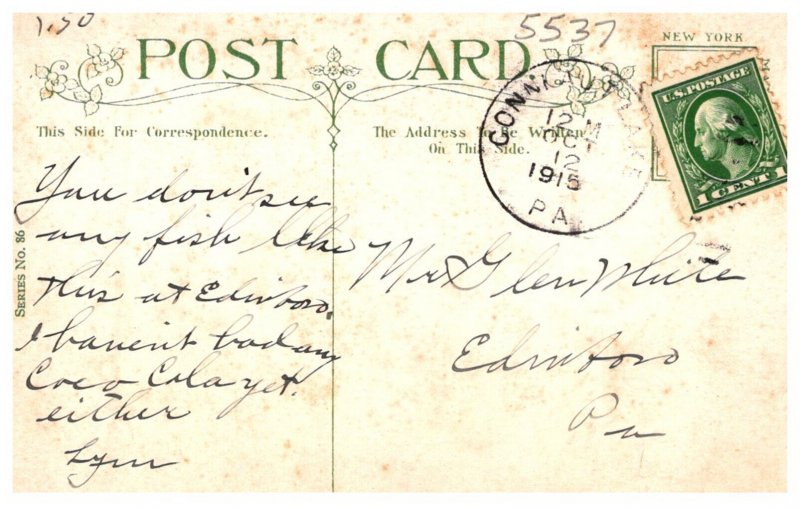 1.50
5537
POST CARD
NEW YORK
This Side For Correspondence.
The Address to Be Written
On This Side.
CONNEAUT LAKE
12 M
OCT
12
1915
PA
U.S. POSTAGE
1 CENT 1
SERIES No. 86
You don't see
any fish like
this at Edinboro.
I haven't had any
Coco Cola yet.
either
Lym
Mr Glen White
Edinboro
Pa